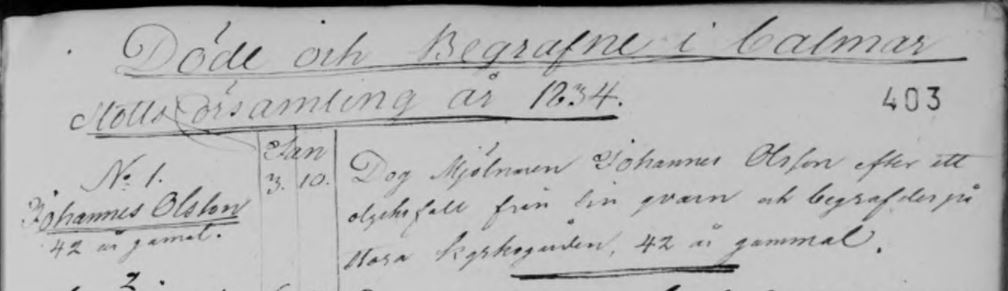 Döde och Begrafne i Calmar
Slotts Församling år 1834.
403
Jan
3. 10.
No 1.
Johannes Olsson
42 år gamal.
Dog Mjölnaren Johannes Olsson efter ett
olycksfall från sin qvarn och begrafdes på
stora kyrkogården, 42 år gammal.